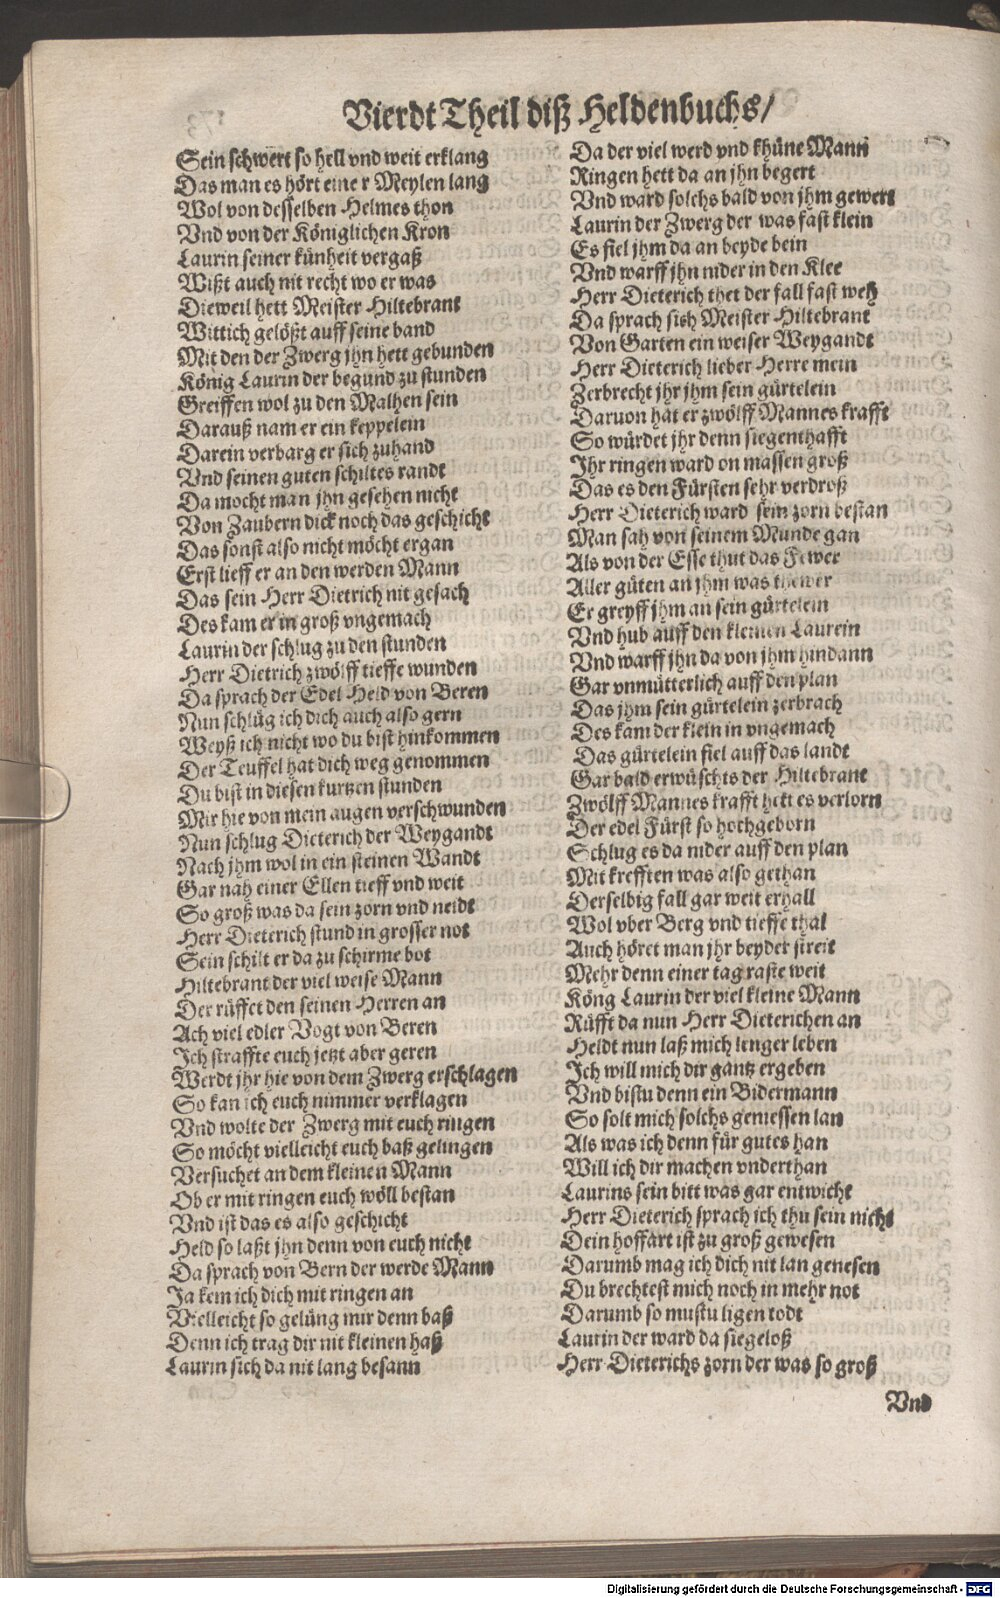 Vierdt Theil diß Heldenbuchs/
Sein schwert so hell vnd weit erklang
Das man es hört einer Meylen lang
Wol von desselben Helmes thon
Vnd von der Königlichen Kron
Laurin seiner künheit vergaß
Wißt auch nit recht wo er was
Dieweil hett Meister Hiltebrant
Wittich gelößt auff seine band
Mit den der Zwerg jhn hett gebunden
König Laurin der begund zu stunden
Greiffen wol zu den Malhen sein
Darauß nam er ein keppelein
Darein verbarg er sich zuhand
Vnd seinen guten schiltes randt
Da mocht man jhn gesehen nicht
Von Zaubern dick noch das geschicht
Das sonst also nicht möcht ergan
Erst lieff er an den werden Mann
Das sein Herr Dietrich nit gesach
Des kam er in groß vngemach
Laurin der schlug zu den stunden
Herr Dietrich zwölff tieffe wunden
Da sprach der Edel Held von Beren
Nun schlüg ich dich auch also gern
Weyß ich nicht wo du bist hinkommen
Der Teuffel hat dich weg genommen
Du bist in diesen kurtzen stunden
Mir hie von mein augen verschwunden
Nun schlug Dieterich der Weygandt
Nach jhm wol in ein steinen Wandt
Gar nah einer Ellen tieff vnd weit
So groß was da sein zorn vnd neidt
Herr Dieterich stund in grosser not
Sein schilt er da zu schirme bot
Hiltebrant der viel weise Mann
Der rüffet den seinen Herren an
Ach viel edler Vogt von Beren
Ich straffte euch jetzt aber geren
Werdt jhr hie von dem Zwerg erschlagen
So kan ich euch nimmer verklagen
Vnd wolte der Zwerg mit euch ringen
So möcht vielleicht euch baß gelingen
Versuchet an dem kleinen Mann
Ob er mit ringen euch wöll bestan
Vnd ist das es also geschicht
Held so laßt jhn denn von euch nicht
Da sprach von Bern der werde Mann
Ja kem ich dich mit ringen an
Vielleicht so gelüng mir denn baß
Denn ich trag dir nit kleinen haß
Laurin sich da nit lang besann
Da der viel werd vnd khüne Mann
Ringen hett da an jhn begert
Vnd ward solchs bald von jhm gewert
Laurin der Zwerg der was fast klein
Es fiel jhm da an beyde bein
Vnd warff jhn nider in den Klee
Herr Dieterich thet der fall fast weh
Da sprach sich Meister Hiltebrant
Von Garten ein weiser Weygandt
Herr Dieterich lieber Herre mein
Zerbrecht jhr jhm sein gürtelein
Daruon hat er zwölff Mannes krafft
So würdet jhr denn siegenthafft
Ihr ringen ward on massen groß
Das es den Fürsten sehr verdroß
Herr Dieterich ward sein zorn bestan
Man sah von seinem Munde gan
Als von der Esse thut das Fewer
Aller güten an jhm was thewer
Er greyff jhm an sein gürtelein
Vnd hub auff den kleinen Laurein
Vnd warff jhn da von jhm hindann
Gar vnmütterlich auff den plan
Das jhm sein gürtelein zerbrach
Des kam der klein in vngemach
Das gürtelein fiel auff das landt
Gar bald erwüschts der Hiltebrant
Zwölff Mannes krafft hett es verlorn
Der edel Fürst so hochgeborn
Schlug es da nider auff den plan
Mit krefften was also gethan
Derselbig fall gar weit erhall
Wol vber Berg vnd tieffe thal
Auch höret man jhr beyder streit
Mehr denn einer tag raste weit
Köng Laurin der viel kleine Mann
Rüfft da nun Herr Dieterichen an
Heldt nun laß mich lenger leben
Ich will mich dir gantz ergeben
Vnd bistu denn ein Bidermann
So solt mich solchs geniessen lan
Als was ich denn für gutes han
Will ich dir machen vnderthan
Laurins sein bitt was gar entwicht
Herr Dieterich sprach ich thu sein nicht
Dein hoffart ist zu groß gewesen
Darumb mag ich dich nit lan genesen
Du brechtest mich noch in mehr not
Darumb so mustu ligen todt
Laurin der ward da siegeloß
Herr Dieterichs zorn der was so groß
Vnd
Digitalisierung gefördert durch die Deutsche Forschungsgemeinschaft - DFG